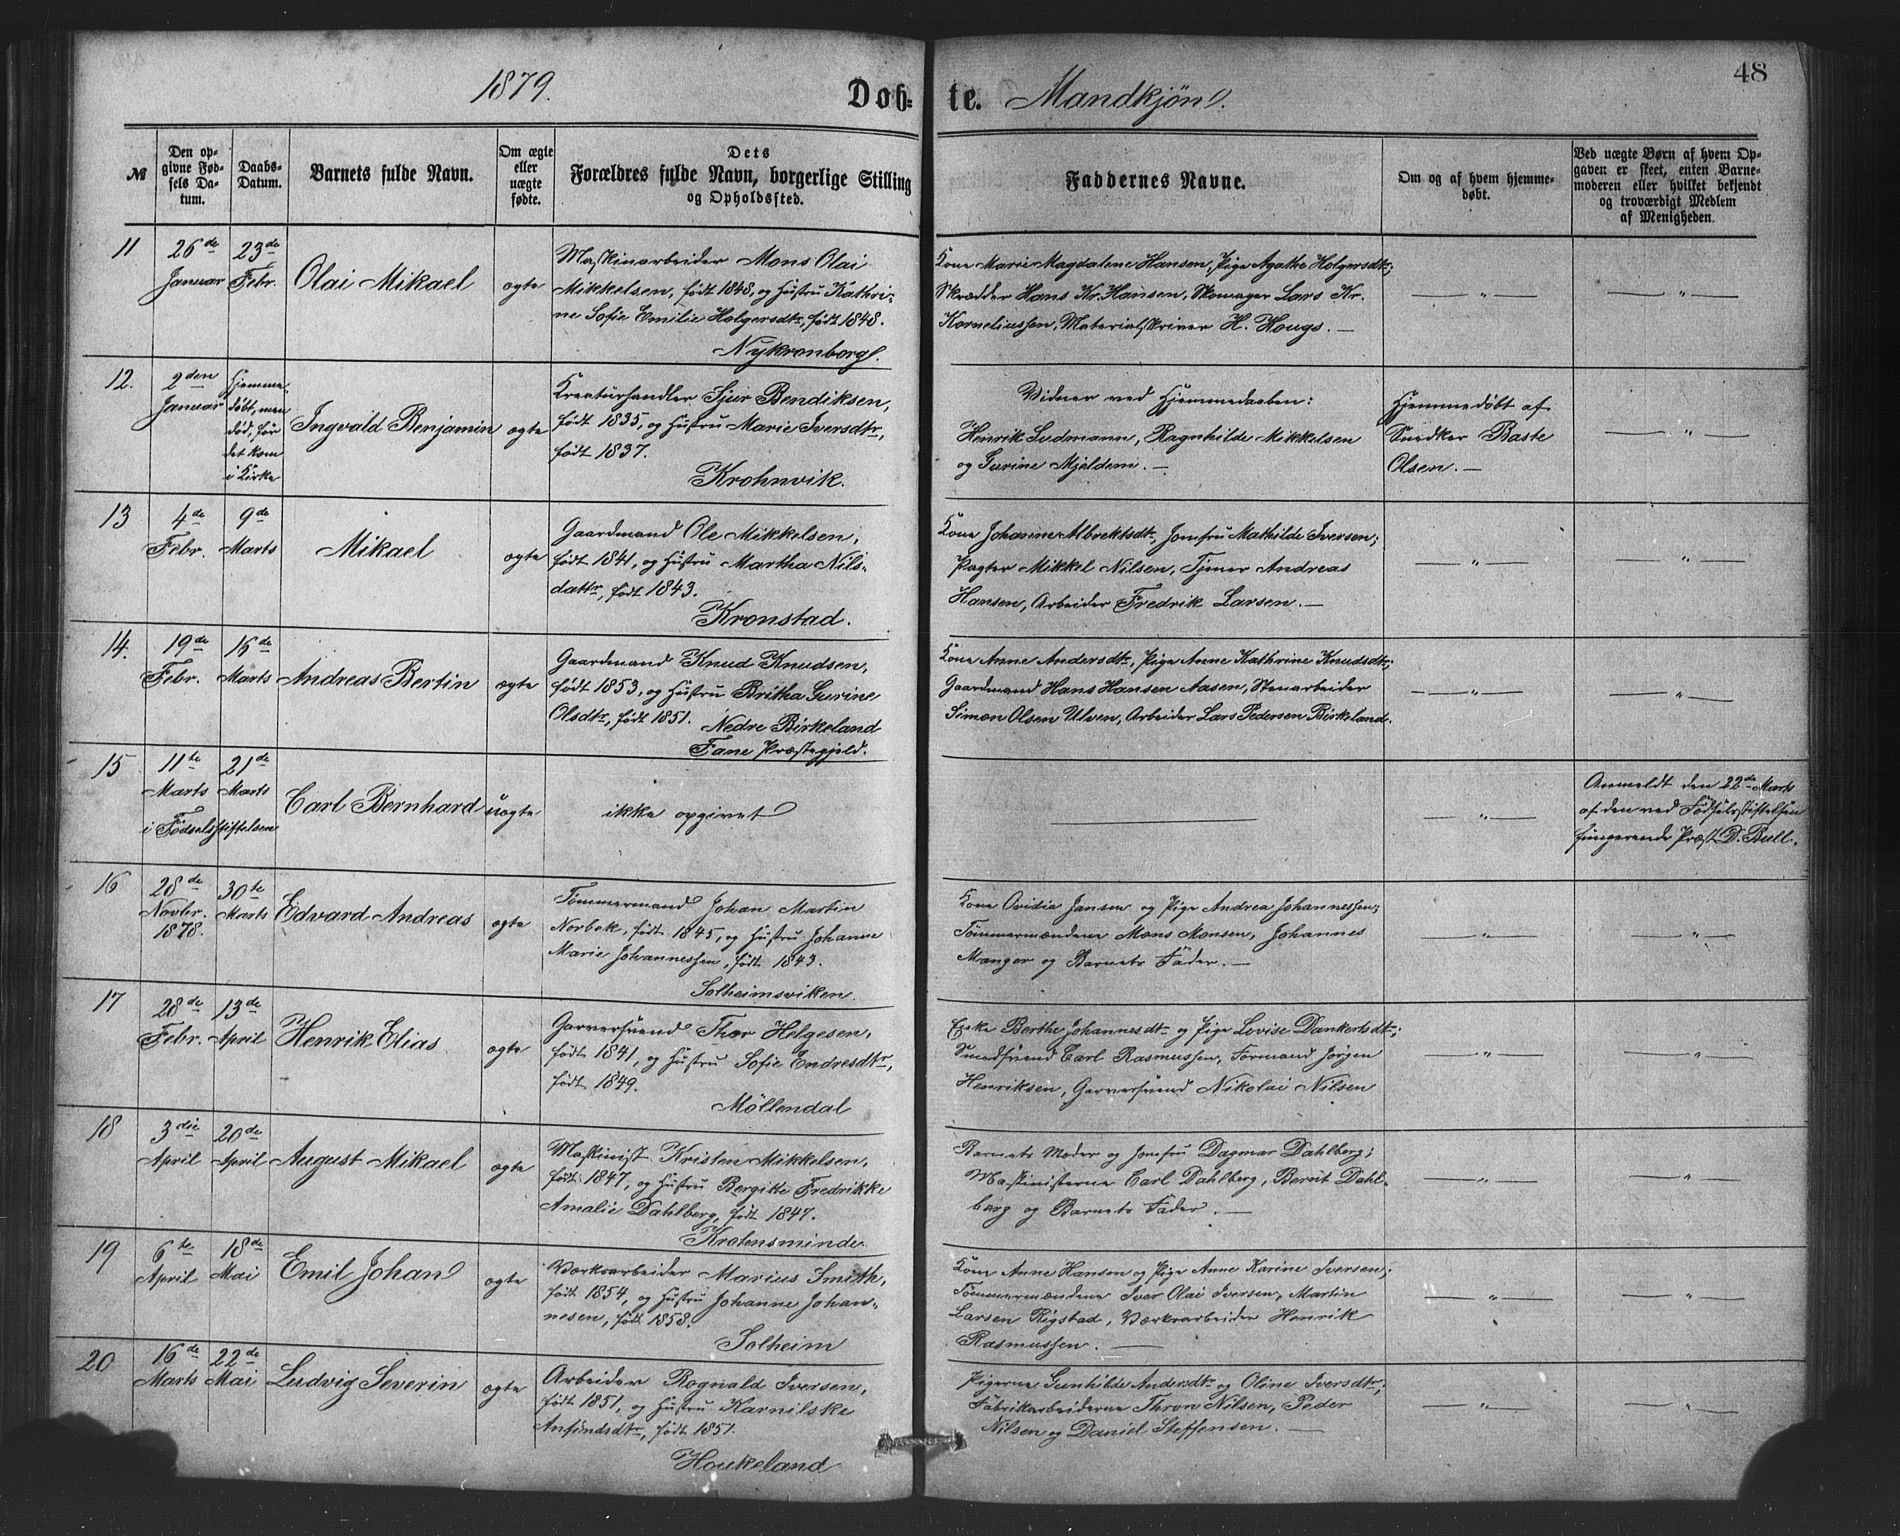 1879.
Døb-
te. Mandkjøn.
48
№
Den op-
givne Fød-
sels Da-
tum.
Daabs-
Datum.
Barnets fulde Navn.
Om ægte
eller
uægte
fødte.
Dets
Forældres fulde Navn, borgerlige Stilling
og Opholdssted.
Faddernes Navne.
Om og af hvem hjemme-
døbt.
Ved uægte Børn af hvem Op-
gaven er skeet, enten Barne-
moderen eller hvilket bekjendt
og troværdigt Medlem
af Menigheden.
11
26de
Januar
23de
Febr.
Olai Mikael
ægte
Maskinarbeider Mons Olai
Mikkelsen, født 1848, og Hustru Kathri-
ne Sofie Emilie Holgersdtr, født 1848.
Nykronborg.
Kone Marie Magdalene Hansen, Pige Agathe Holgersdtr;
Skrædder Hans Kr. Hansen, Skomager Lars Kr.
Korneliussen, Materialskriver H. Hougs. —
— " —
— " —
12.
2den
Januar
Hjemme-
døbt, men
død, før
det kom
i Kirke
Ingvald Benjamin
ægte
Kreaturhandler Sjur Bendiksen,
født 1835, og Hustru Marie Iversdtr,
født 1837.
Krohnvik.
Vidner ved Hjemmedaaben:
Henrik Sudmann, Ragnhilde Mikkelsen
og Gurine Mjeldem. —
Hjemmedøbt af
Snedker Baste
Olsen. —
— " —
13
4de
Febr.
9de
Marts
Mikael
ægte
Gaardmand Ole Mikkelsen,
født 1841, og Hustru Martha Nils-
dattr, født 1843.
Kronstad.
Kone Johanne Albrektsdtr, Jomfru Mathilde Iversen;
Pagter Mikkel Nilsen, Tjener Andreas
Hansen, Arbeider Fredrik Larsen. —
— " —
— " —
14.
19de
Febr.
16de
Marts
Andreas Bertin
ægte
Gaardmand Knud Knudsen,
født 1853, og Hustru Britha Gurine
Olsdtr, født 1851.
Nedre Birkeland
Fane Præstegjeld.
Kone Anne Andersdtr, Pige Anne Kathrine Knudsdtr;
Gaardmand Hans Hansen Aasen, Stenarbeider
Simon Olsen Ulven, Arbeider Lars Pedersen Birkeland.
— " —
— " —
15
11te
Marts
i Fødselsstiftelsen
21de
Marts
Carl Bernhard
uægte
ikke opgivet
— " —
Anmeldt den 22de Marts
af den ved Fødselsstiftelsen
fungerende Præst D. Bull.
16
28de
Novbr.
1878.
30te
Marts
Edvard Andreas
ægte
Tømmermand Johan Martin
Norbok, født 1845, og Hustru Johanne
Marie Johannessen, født 1843.
Solheimsviken.
Kone Ovidia Jansen og Pige Andrea Johannessen;
Tømmermændene Mons Monsen, Johannes
Manger og Barnets Fader. —
— " —
— " —
17
28de
Febr.
13de
April
Henrik Elias
ægte
Garversvend Thor Helgesen,
født 1841, og Hustru Sofie Endresdtr,
født 1849.
Möllendal
Enke Berthe Johannesdtr og Pige Lovise Dankertsdtr;
Smedsvend Carl Rasmussen, Formand Jørgen
Henriksen, Garversvend Nikolai Nilsen
— " —
— " —
18
3die
April
20de
April
August Mikael
ægte
Maskinist Kristen Mikkelsen,
født 1847, og Hustru Bergitte Fredrikke
Amalie Dahlberg, født 1847.
Krohnsminde.
Barnets Moder og Jomfru Dagmar Dahlberg;
Maskinisterne Carl Dahlberg, Bernt Dahl-
berg og Barnets Fader. —
— " —
— " —
19
6te
April
18de
Mai
Emil Johan
ægte
Værksarbeider Marius Smith,
født 1854, og Hustru Johanne Johan-
nesen, født 1858.
Solheim
Kone Anne Hansen og Pige Anne Karine Iversen;
Tømmermændene Iver Olai Iversen, Martin
Larsen Rigstad, Værksarbeider Henrik
Rasmussen. —
— " —
— " —
20
16de
Marts
22de
Mai
Ludvig Severin
ægte
Arbeider Ragnald Iversen,
født 1851, og Hustru Karnilske
Anfindsdtr, født 1851.
Houkeland
Pigerne Gunhilde Andersdtr og Oline Iversdtr;
Fabrikarbeiderne Thron Nilsen, Peder
Nilsen og Daniel Steffensen. —
— " —
— " —